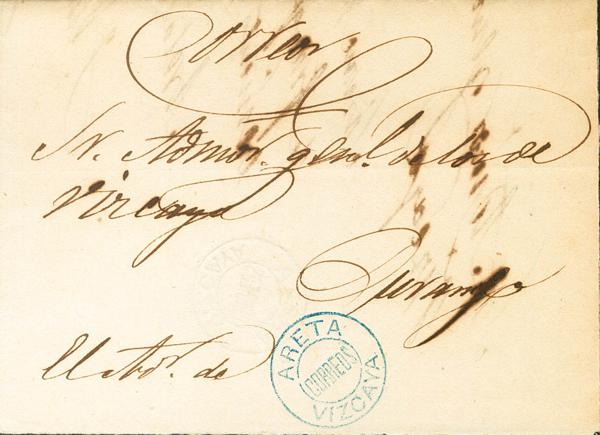 Correo
Sr. Admor. genl. de los de
Vizcaya
Durango
El Ador. de
ARETA
CORREOS
VIZCAYA